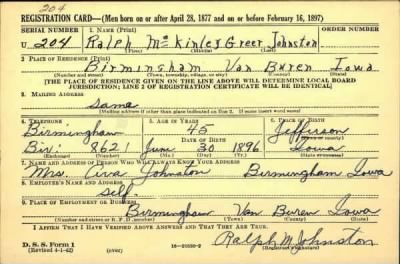 204
REGISTRATION CARD—(Men born on or after April 28, 1877 and on or before February 16, 1897)
SERIAL NUMBER 1. NAME (Print)
U 204 Ralph McKinley Greer Johnston
(First) (Middle) (Last)
2. PLACE OF RESIDENCE (Print)
Birmingham Van Buren Iowa
(Number and street) (Town, township, village, or city) (County) (State)
[THE PLACE OF RESIDENCE GIVEN ON THE LINE ABOVE WILL DETERMINE LOCAL BOARD
JURISDICTION; LINE 2 OF REGISTRATION CERTIFICATE WILL BE IDENTICAL]
3. MAILING ADDRESS
Same
[Mailing address if other than place indicated on line 2. If same insert word same]
4. TELEPHONE 5. AGE IN YEARS 6. PLACE OF BIRTH
Birmingham 45 Jefferson
DATE OF BIRTH (Town or county)
Bir: 8621 June 30 1896 Iowa
(Exchange) (Number) (Mo.) (Day) (Yr.) (State or country)
7. NAME AND ADDRESS OF PERSON WHO WILL ALWAYS KNOW YOUR ADDRESS
Mrs. Johnston Birmingham Iowa
8. EMPLOYER'S NAME AND ADDRESS
Self
9. PLACE OF EMPLOYMENT OR BUSINESS
Birmingham Van Buren Iowa
(Number and street or R. F. D. number) (Town) (County) (State)
I AFFIRM THAT I HAVE VERIFIED ABOVE ANSWERS AND THAT THEY ARE TRUE.
D. S. S. Form 1
(Revised 4-1-42) (over) Ralph M Johnston
(Registrant's signature)